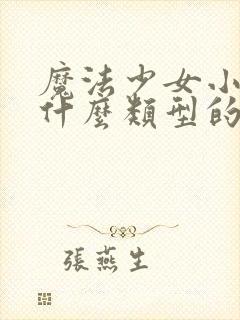 魔法少女小
什麼類型的
張燕生